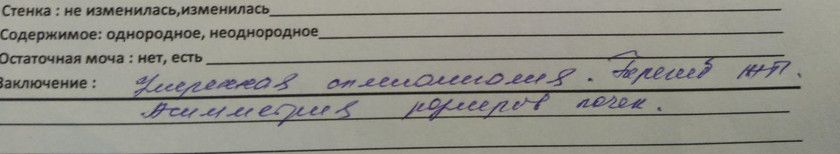 Стенка : не изменилась,изменилась
Содержимое: однородное, неоднородное
Остаточная моча : нет, есть
Заключение : Умеренная спленомегалия. Перегиб ЖП.
Асимметрия размеров почек.